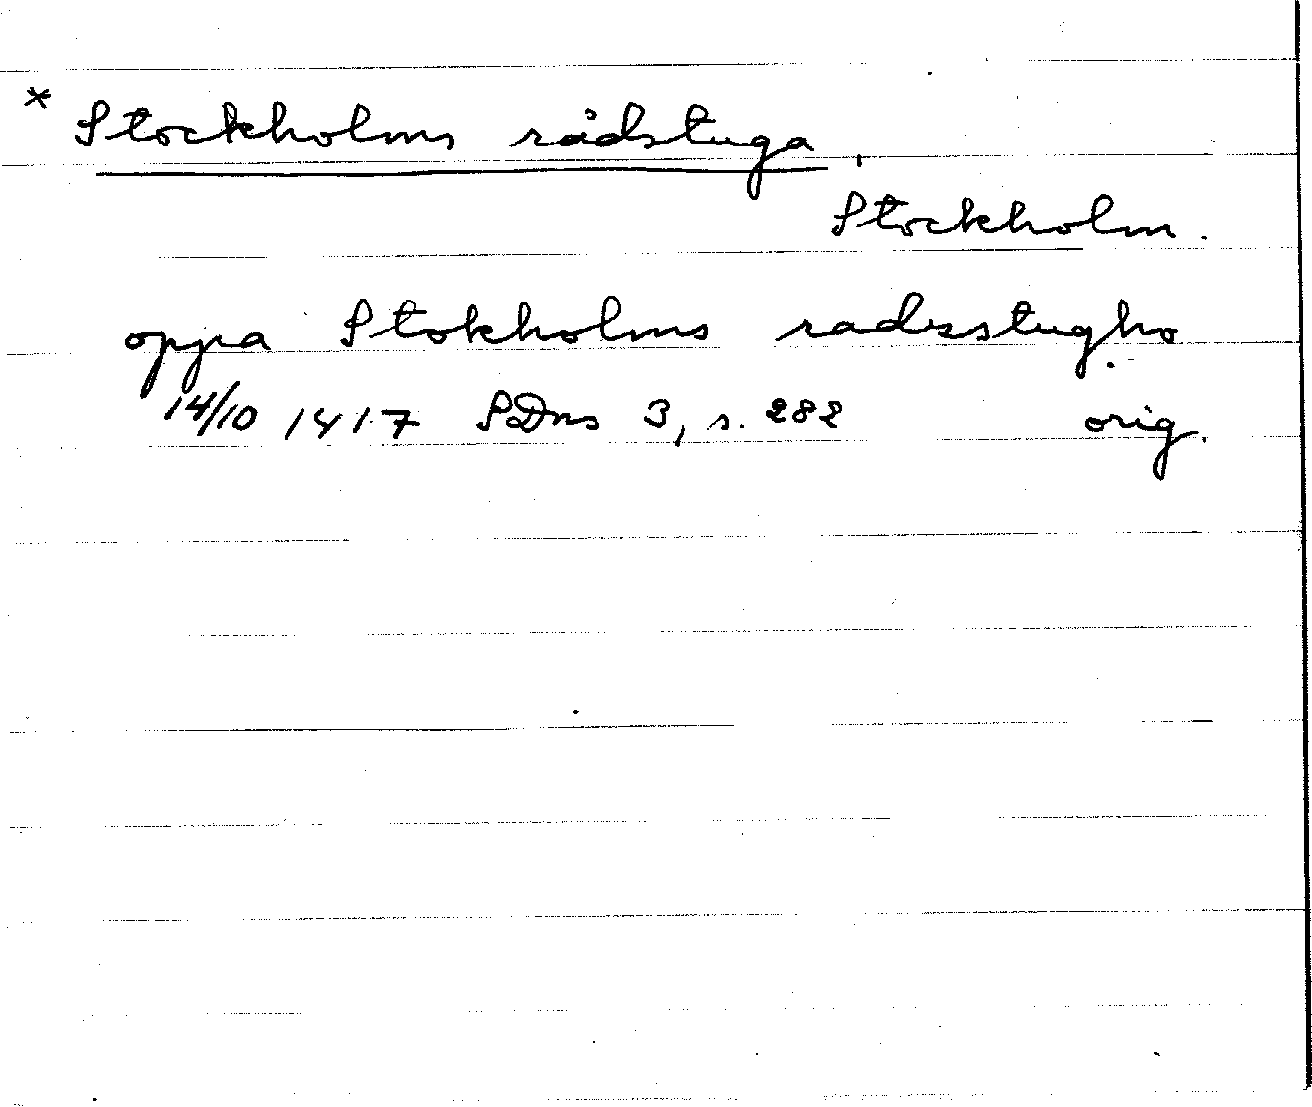 * Stockholms rådstuga,
Stockholm.
oppa Stokholms radzstugho
14/10 1417 SDns 3, s. 282 orig.